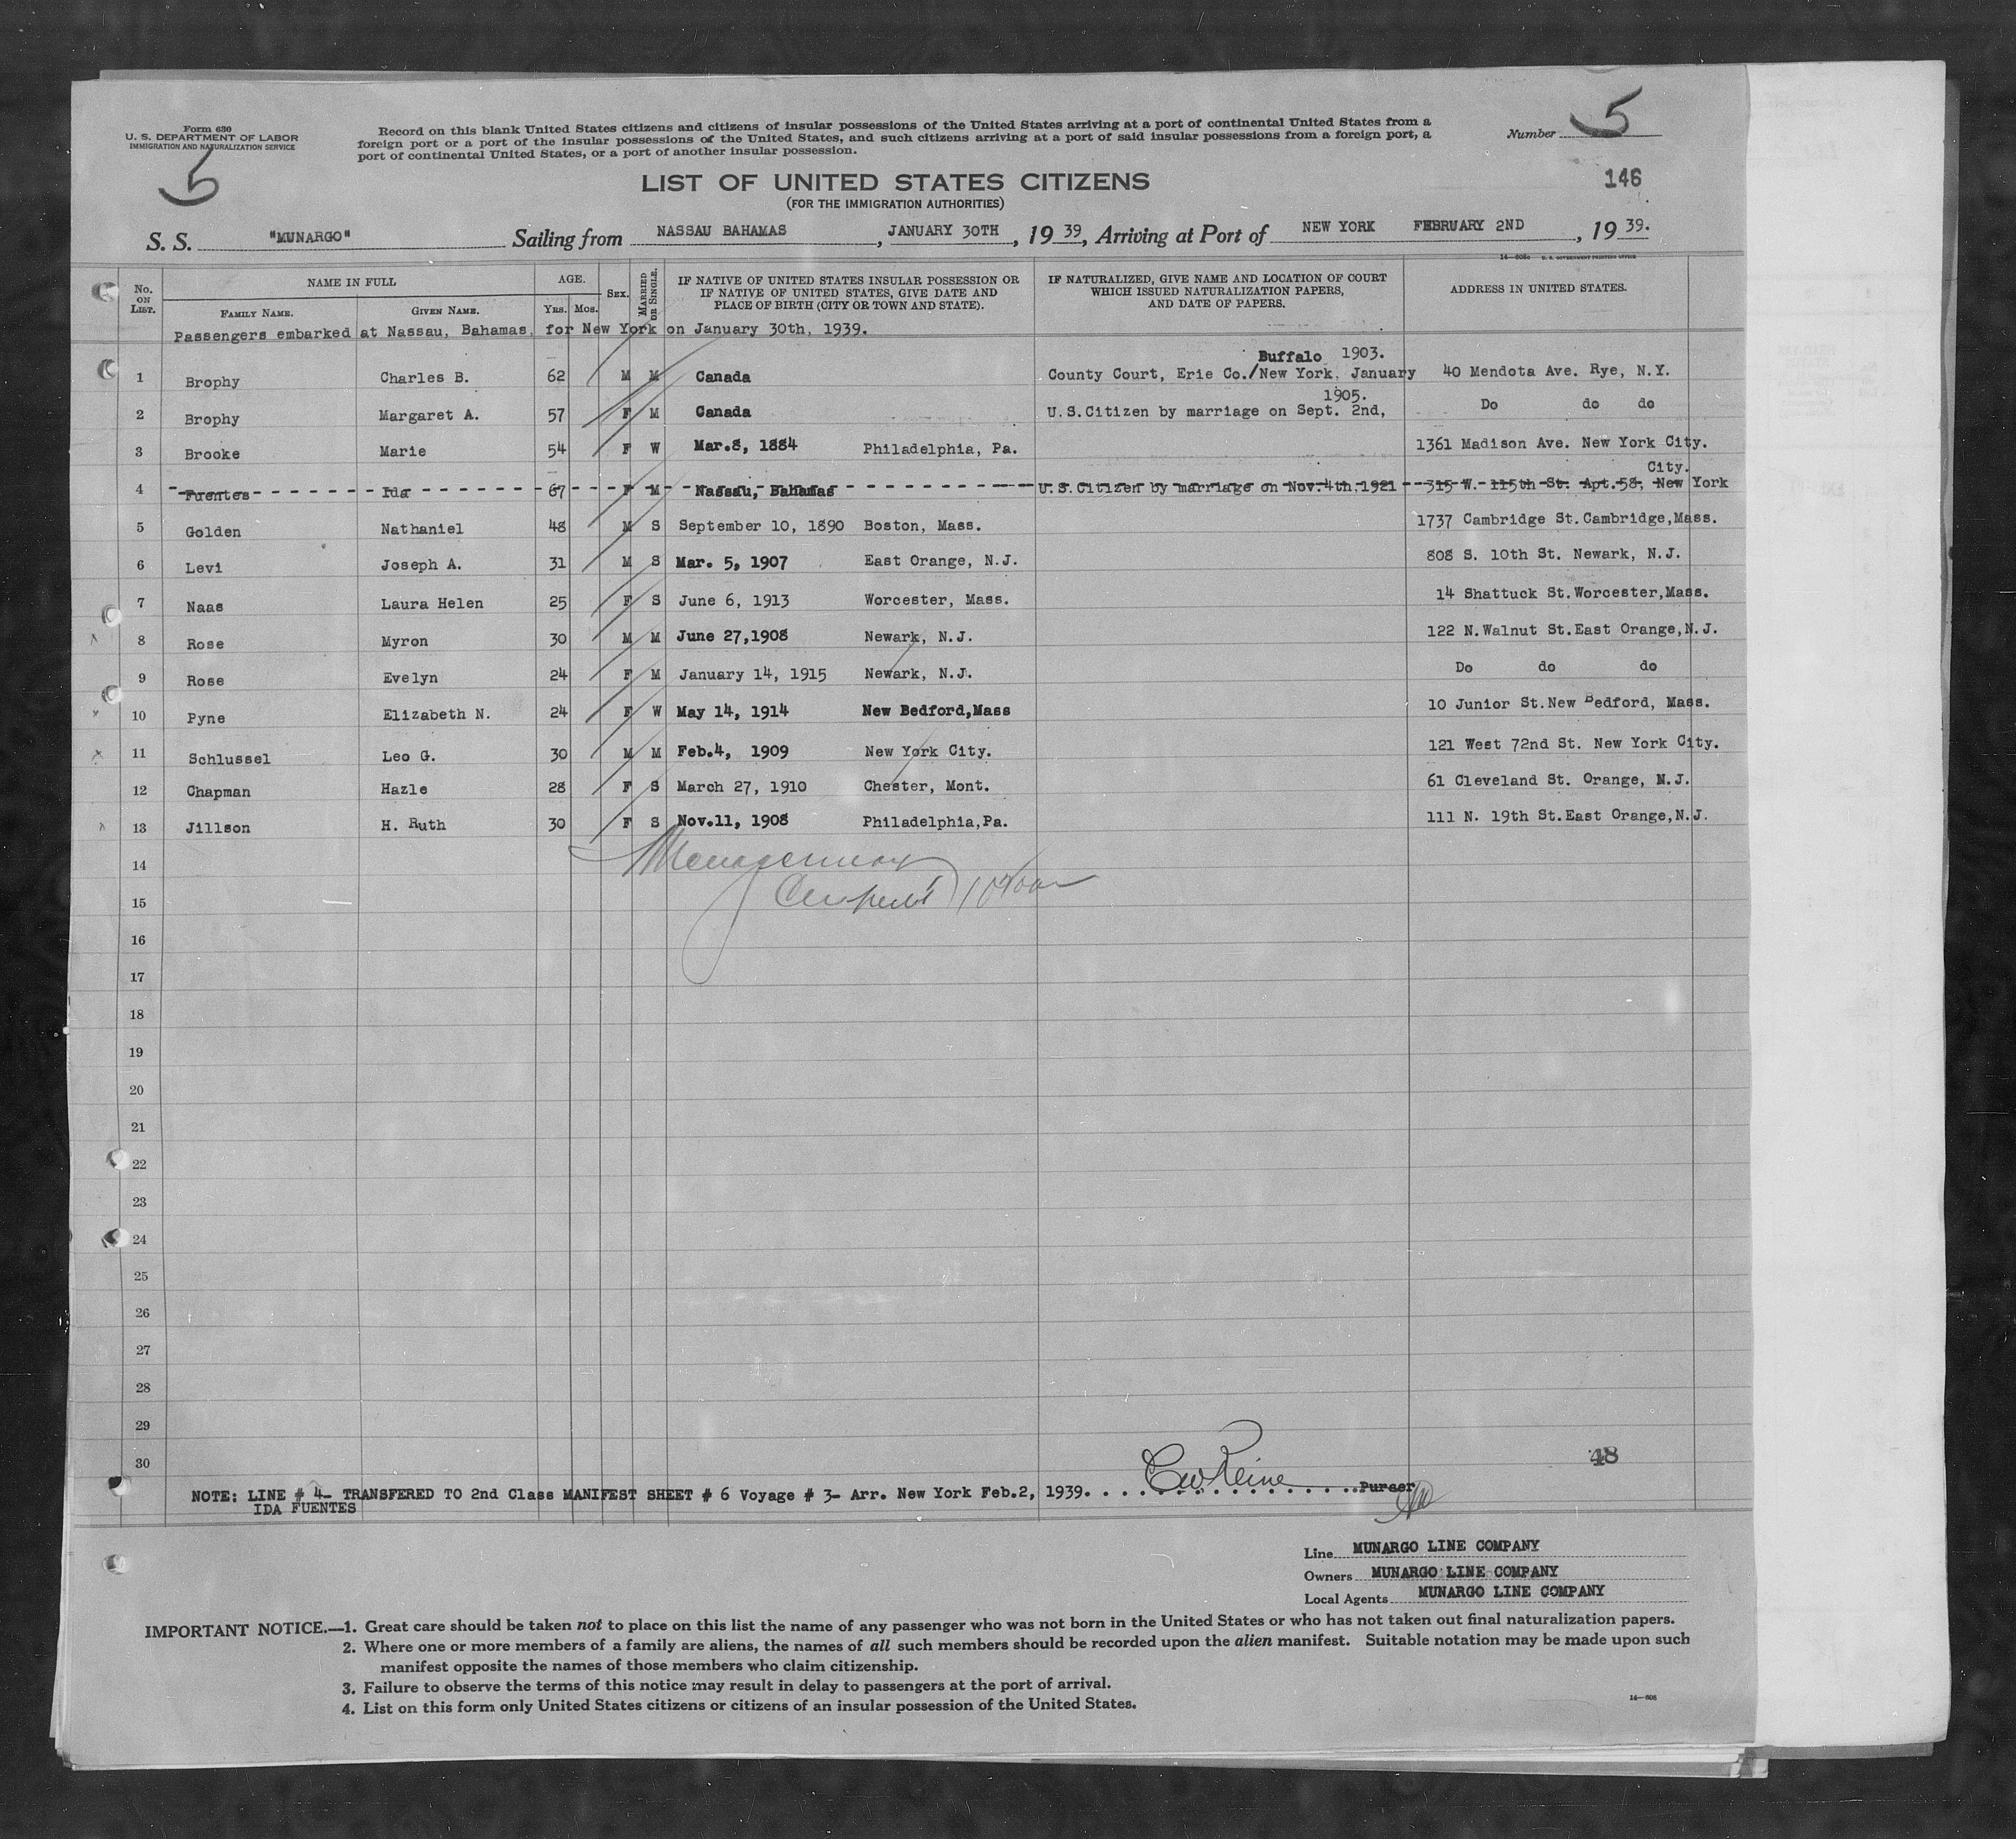 Form 630
U. S. DEPARTMENT OF LABOR
IMMIGRATION AND NATURALIZATION SERVICE
5
Record on this blank United States citizens and citizens of insular possessions of the United States arriving at a port of continental United States from a
foreign port or a port of the insular possessions of the United States, and such citizens arriving at a port of said insular possessions from a foreign port, a
port of continental United States, or a port of another insular possession.
Number 5
146
LIST OF UNITED STATES CITIZENS
(FOR THE IMMIGRATION AUTHORITIES)
S. S. "MUNARGO" Sailing from NASSAU BAHAMAS, JANUARY 30TH, 1939, Arriving at Port of NEW YORK FEBRUARY 2ND, 1939.
14—608c U. S. GOVERNMENT PRINTING OFFICE
No. ON LIST. NAME IN FULL FAMILY NAME. GIVEN NAME. AGE. YRS. MOS. SEX. MARRIED OR SINGLE. IF NATIVE OF UNITED STATES INSULAR POSSESSION OR IF NATIVE OF UNITED STATES, GIVE DATE AND PLACE OF BIRTH (CITY OR TOWN AND STATE). IF NATURALIZED, GIVE NAME AND LOCATION OF COURT WHICH ISSUED NATURALIZATION PAPERS, AND DATE OF PAPERS. ADDRESS IN UNITED STATES.
Passengers embarked at Nassau, Bahamas, for New York on January 30th, 1939.
Buffalo 1903.
1 Brophy Charles B. 62 M M Canada County Court, Erie Co./New York, January 40 Mendota Ave. Rye, N.Y.
1905.
2 Brophy Margaret A. 57 F M Canada U.S.Citizen by marriage on Sept. 2nd, Do do do
3 Brooke Marie 54 F W Mar.8, 1884 Philadelphia, Pa. 1361 Madison Ave. New York City.
City.
4 Fuentes Ida 67 F M Nassau, Bahamas U.S.Citizen by marriage on Nov.4th,1921 315 W. 115th St. Apt.58, New York
5 Golden Nathaniel 48 M S September 10, 1890 Boston, Mass. 1737 Cambridge St.Cambridge,Mass.
6 Levi Joseph A. 31 M S Mar. 5, 1907 East Orange, N.J. 808 S. 10th St. Newark, N.J.
7 Naas Laura Helen 25 F S June 6, 1913 Worcester, Mass. 14 Shattuck St.Worcester,Mass.
8 Rose Myron 30 M M June 27,1908 Newark, N.J. 122 N.Walnut St.East Orange,N.J.
9 Rose Evelyn 24 F M January 14, 1915 Newark, N.J. Do do do
10 Pyne Elizabeth N. 24 F W May 14, 1914 New Bedford,Mass 10 Junior St.New Bedford, Mass.
11 Schlussel Leo G. 30 M M Feb.4, 1909 New York City. 121 West 72nd St. New York City.
12 Chapman Hazle 28 F S March 27, 1910 Chester, Mont. 61 Cleveland St. Orange, N.J.
13 Jillson H. Ruth 30 F S Nov.11, 1908 Philadelphia,Pa. 111 N. 19th St.East Orange,N.J.
14
15
16
17
18
19
20
21
22
23
24
25
26
27
28
29
30
48
NOTE: LINE # 4— TRANSFERED TO 2nd Class MANIFEST SHEET # 6 Voyage # 3— Arr. New York Feb.2, 1939. Purser
IDA FUENTES
Line MUNARGO LINE COMPANY
Owners MUNARGO LINE COMPANY
Local Agents MUNARGO LINE COMPANY
IMPORTANT NOTICE.—1. Great care should be taken not to place on this list the name of any passenger who was not born in the United States or who has not taken out final naturalization papers.
2. Where one or more members of a family are aliens, the names of all such members should be recorded upon the alien manifest. Suitable notation may be made upon such
manifest opposite the names of those members who claim citizenship.
3. Failure to observe the terms of this notice may result in delay to passengers at the port of arrival.
4. List on this form only United States citizens or citizens of an insular possession of the United States.
14—608